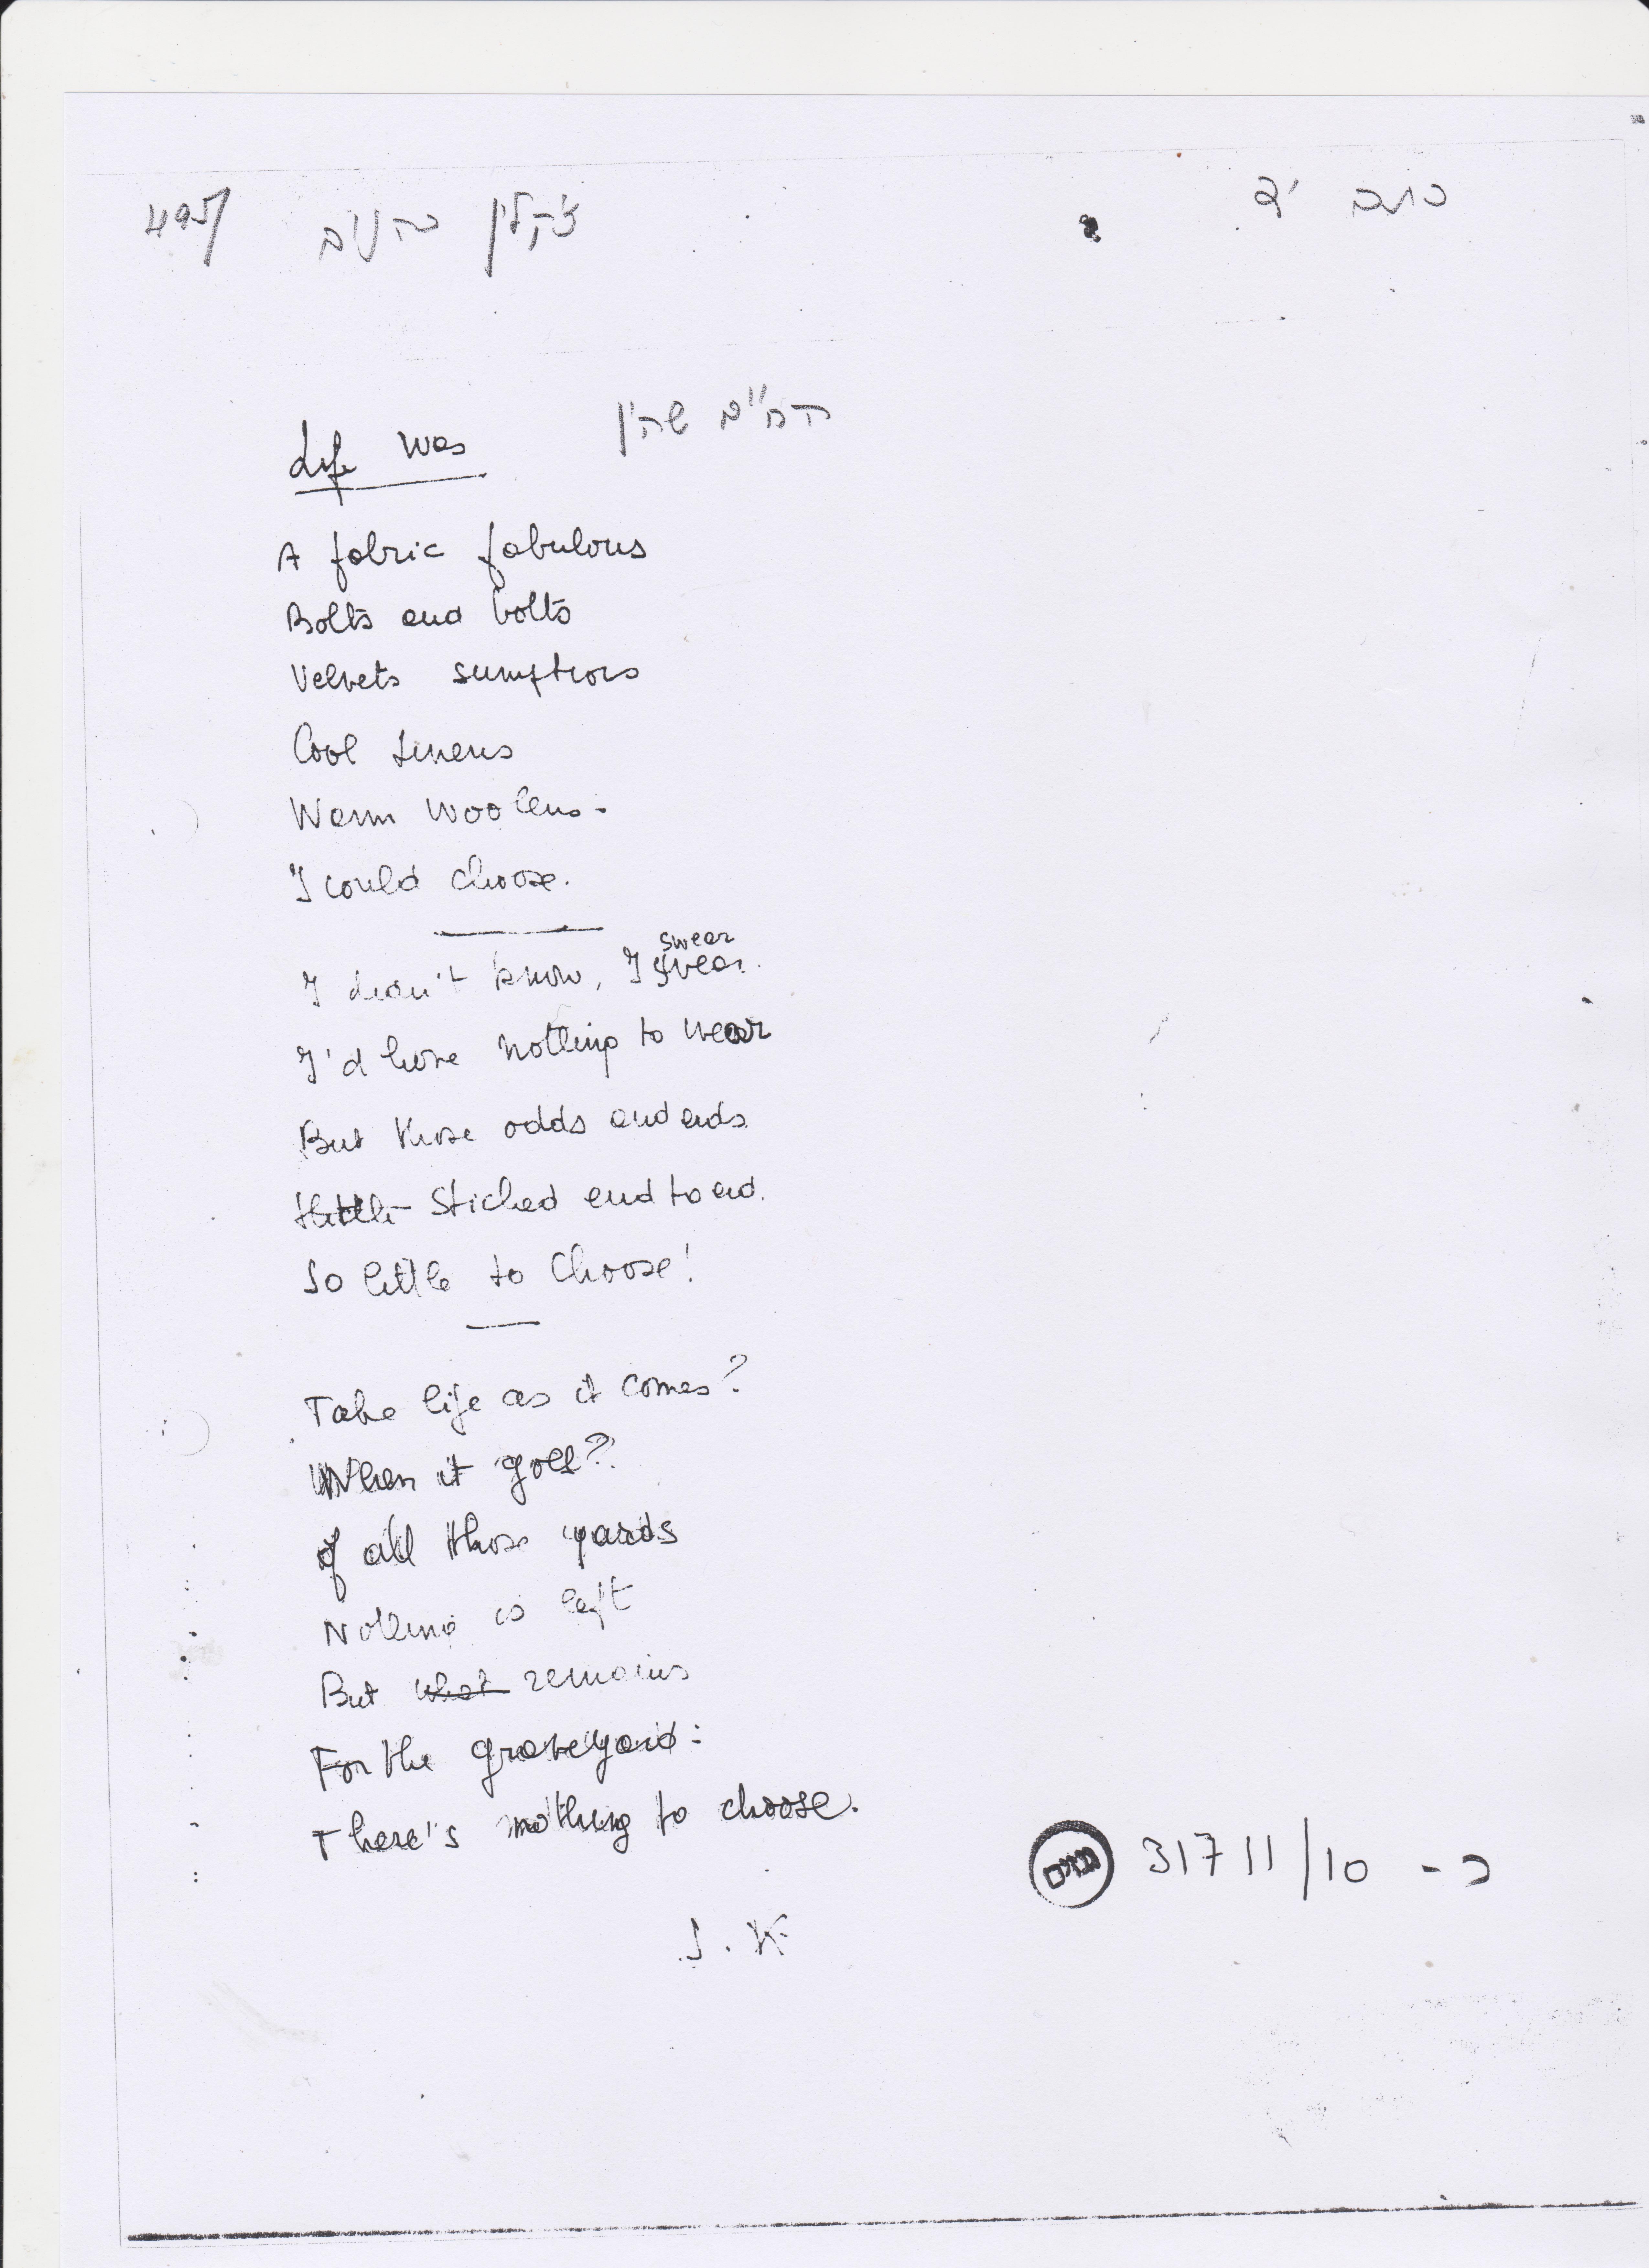 כתב יד
ז'קלין כהנוב
495/
החיים שהיו
Life was
A fabric fabulous
Bolts and bolts
Velvets sumptuous
Cool Linens
Warm Woolens -
I could choose.
swear
I didn't know, I swear.
I'd have nothing to wear
But those odds and ends
Stiched end to end.
So little to choose!
Take life as it comes?
When it goes?
of all those yards
Nothing is left
But what remains
For the graveyard:
There's nothing to choose.
J. K
31711/10 - כ